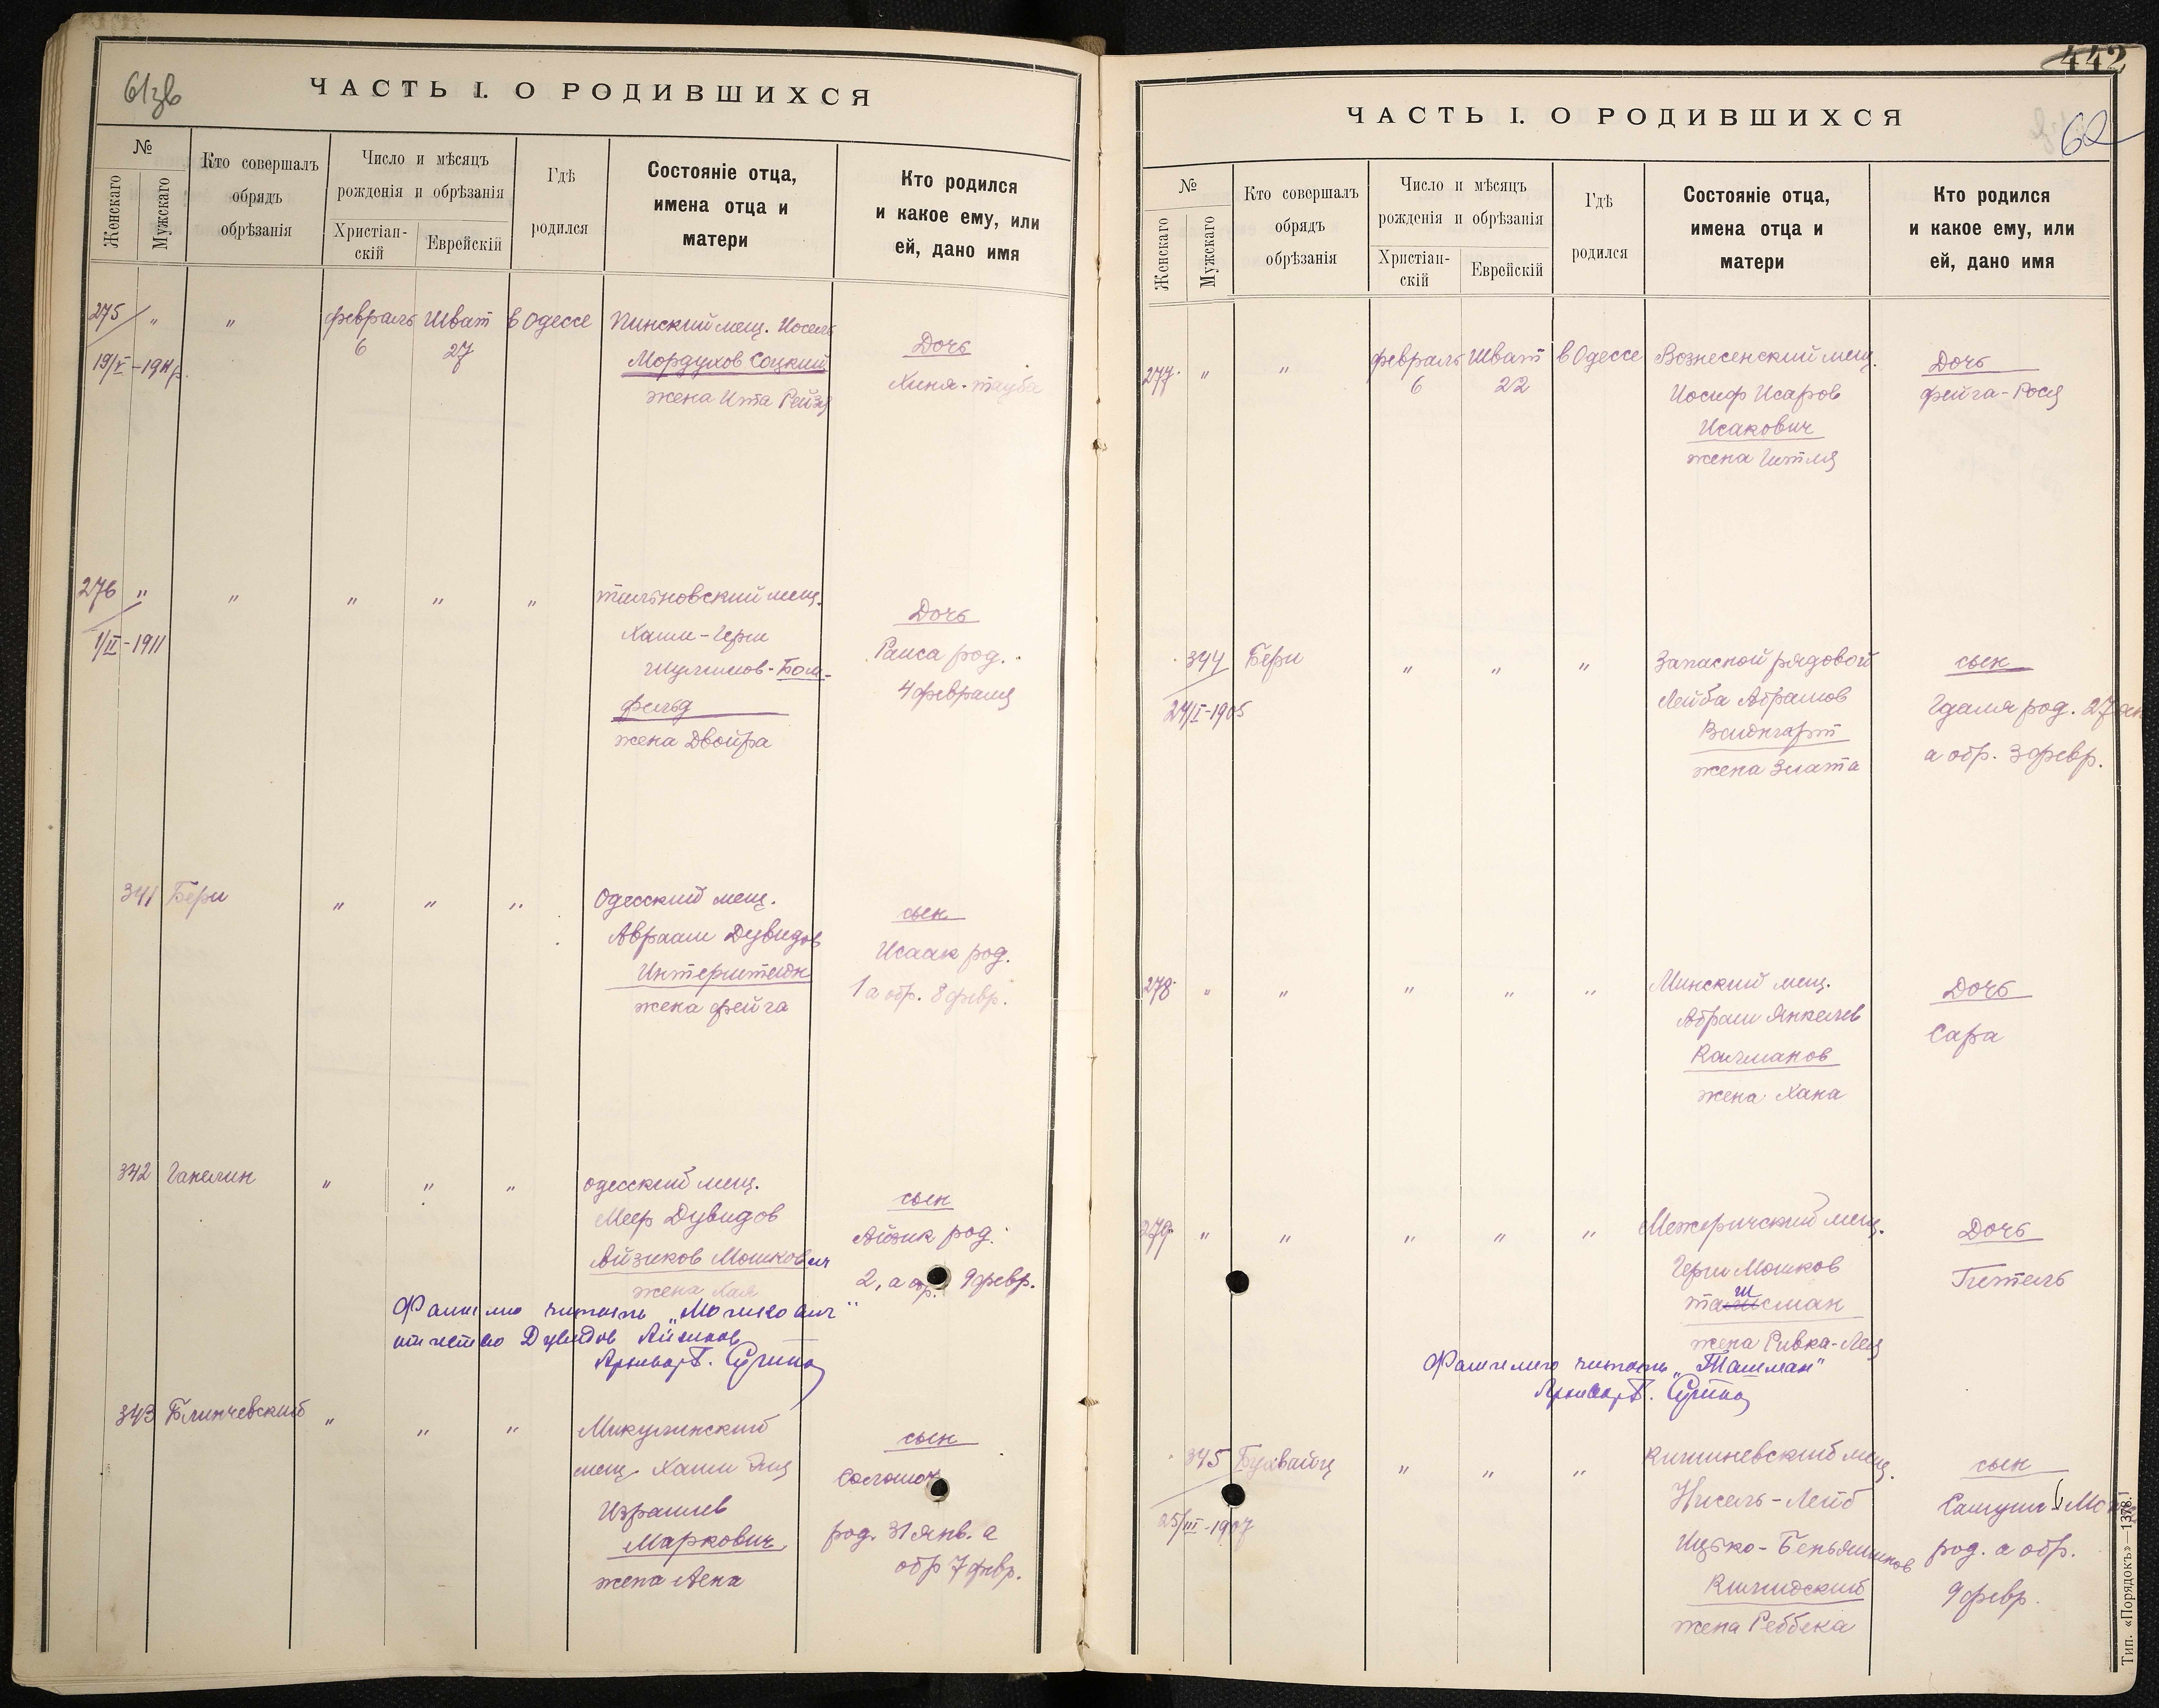 61зв
ЧАСТЬ I. О РОДИВШИХСЯ
№
Женскаго
Мужскаго
Кто совершалъ
обрядъ
обрѣзанія
Число и мѣсяцъ
рожденія и обрѣзанія
Христіан-
скій
Еврейскій
Гдѣ
родился
Состояніе отца,
имена отца и
матери
Кто родился
и какое ему, или
ей, дано имя
275 " " февраль Шват в Одессе Пинский мещ. Иосель
6 27 Дочь
19/V-1911 г. Мордухов Соцкий
Хиня-Тауба
жена Ита Рейзя
276 " " " " " тальновский мещ.
Дочь
1/II-1911 Хаим-Герш
Раиса род.
Шулимов-Бом-
4 февраля
фельд
жена Двойра
341 Бери " " " Одесский мещ.
сын
Авраам Дувидов
Исаак род.
Интерштейн
1 а обр. 8 февр.
жена фейга
342 Гакелин " " " одесский мещ.
сын
Меер Дувидов
Айзик род.
Айзиков Мошкович
2, а обр. 9 февр.
жена Хая
Фамилию читать "Мошкович"
отчество Дувидов Айзиков
343 Блинчевский " " " Микулинский
сын
мещ. Хаим Эля
Соломон
Израилев
род. 31 янв. а
Маркович
обр 7 февр.
жена Лена
442
62
ЧАСТЬ I. О РОДИВШИХСЯ
№
Женскаго
Мужскаго
Кто совершалъ
обрядъ
обрѣзанія
Число и мѣсяцъ
рожденія и обрѣзанія
Христіан-
скій
Еврейскій
Гдѣ
родился
Состояніе отца,
имена отца и
матери
Кто родился
и какое ему, или
ей, дано имя
277. " " февраль Шват в Одессе Вознесенский мещ. Дочь
6 22 Иосиф Исаров фейга-Рося
Исакович
жена Гитля
344 Бери " " " Запасной рядовой сын
24/I-1905 Лейба Абрамов Гдаля род. 27 ян
Вайнгарт а обр. 3 февр.
жена Злата
278. " " " " " Минский мещ. Дочь
Абрам Янкелев Сара
Калманов
жена Хана
279. " " " " " Межеричский мещ. Дочь
Герш Мошков Гитель
жена Ривка-Лея
Фамилию читать "Ташман"
345 Бухвайц " " " Кишиневский мещ. сын
25/III-1907 Нисель-Лейб
Ицько-Беньяминов род. а обр.
9 февр.
жена Реббека
Тип. «Порядокъ»—1378.